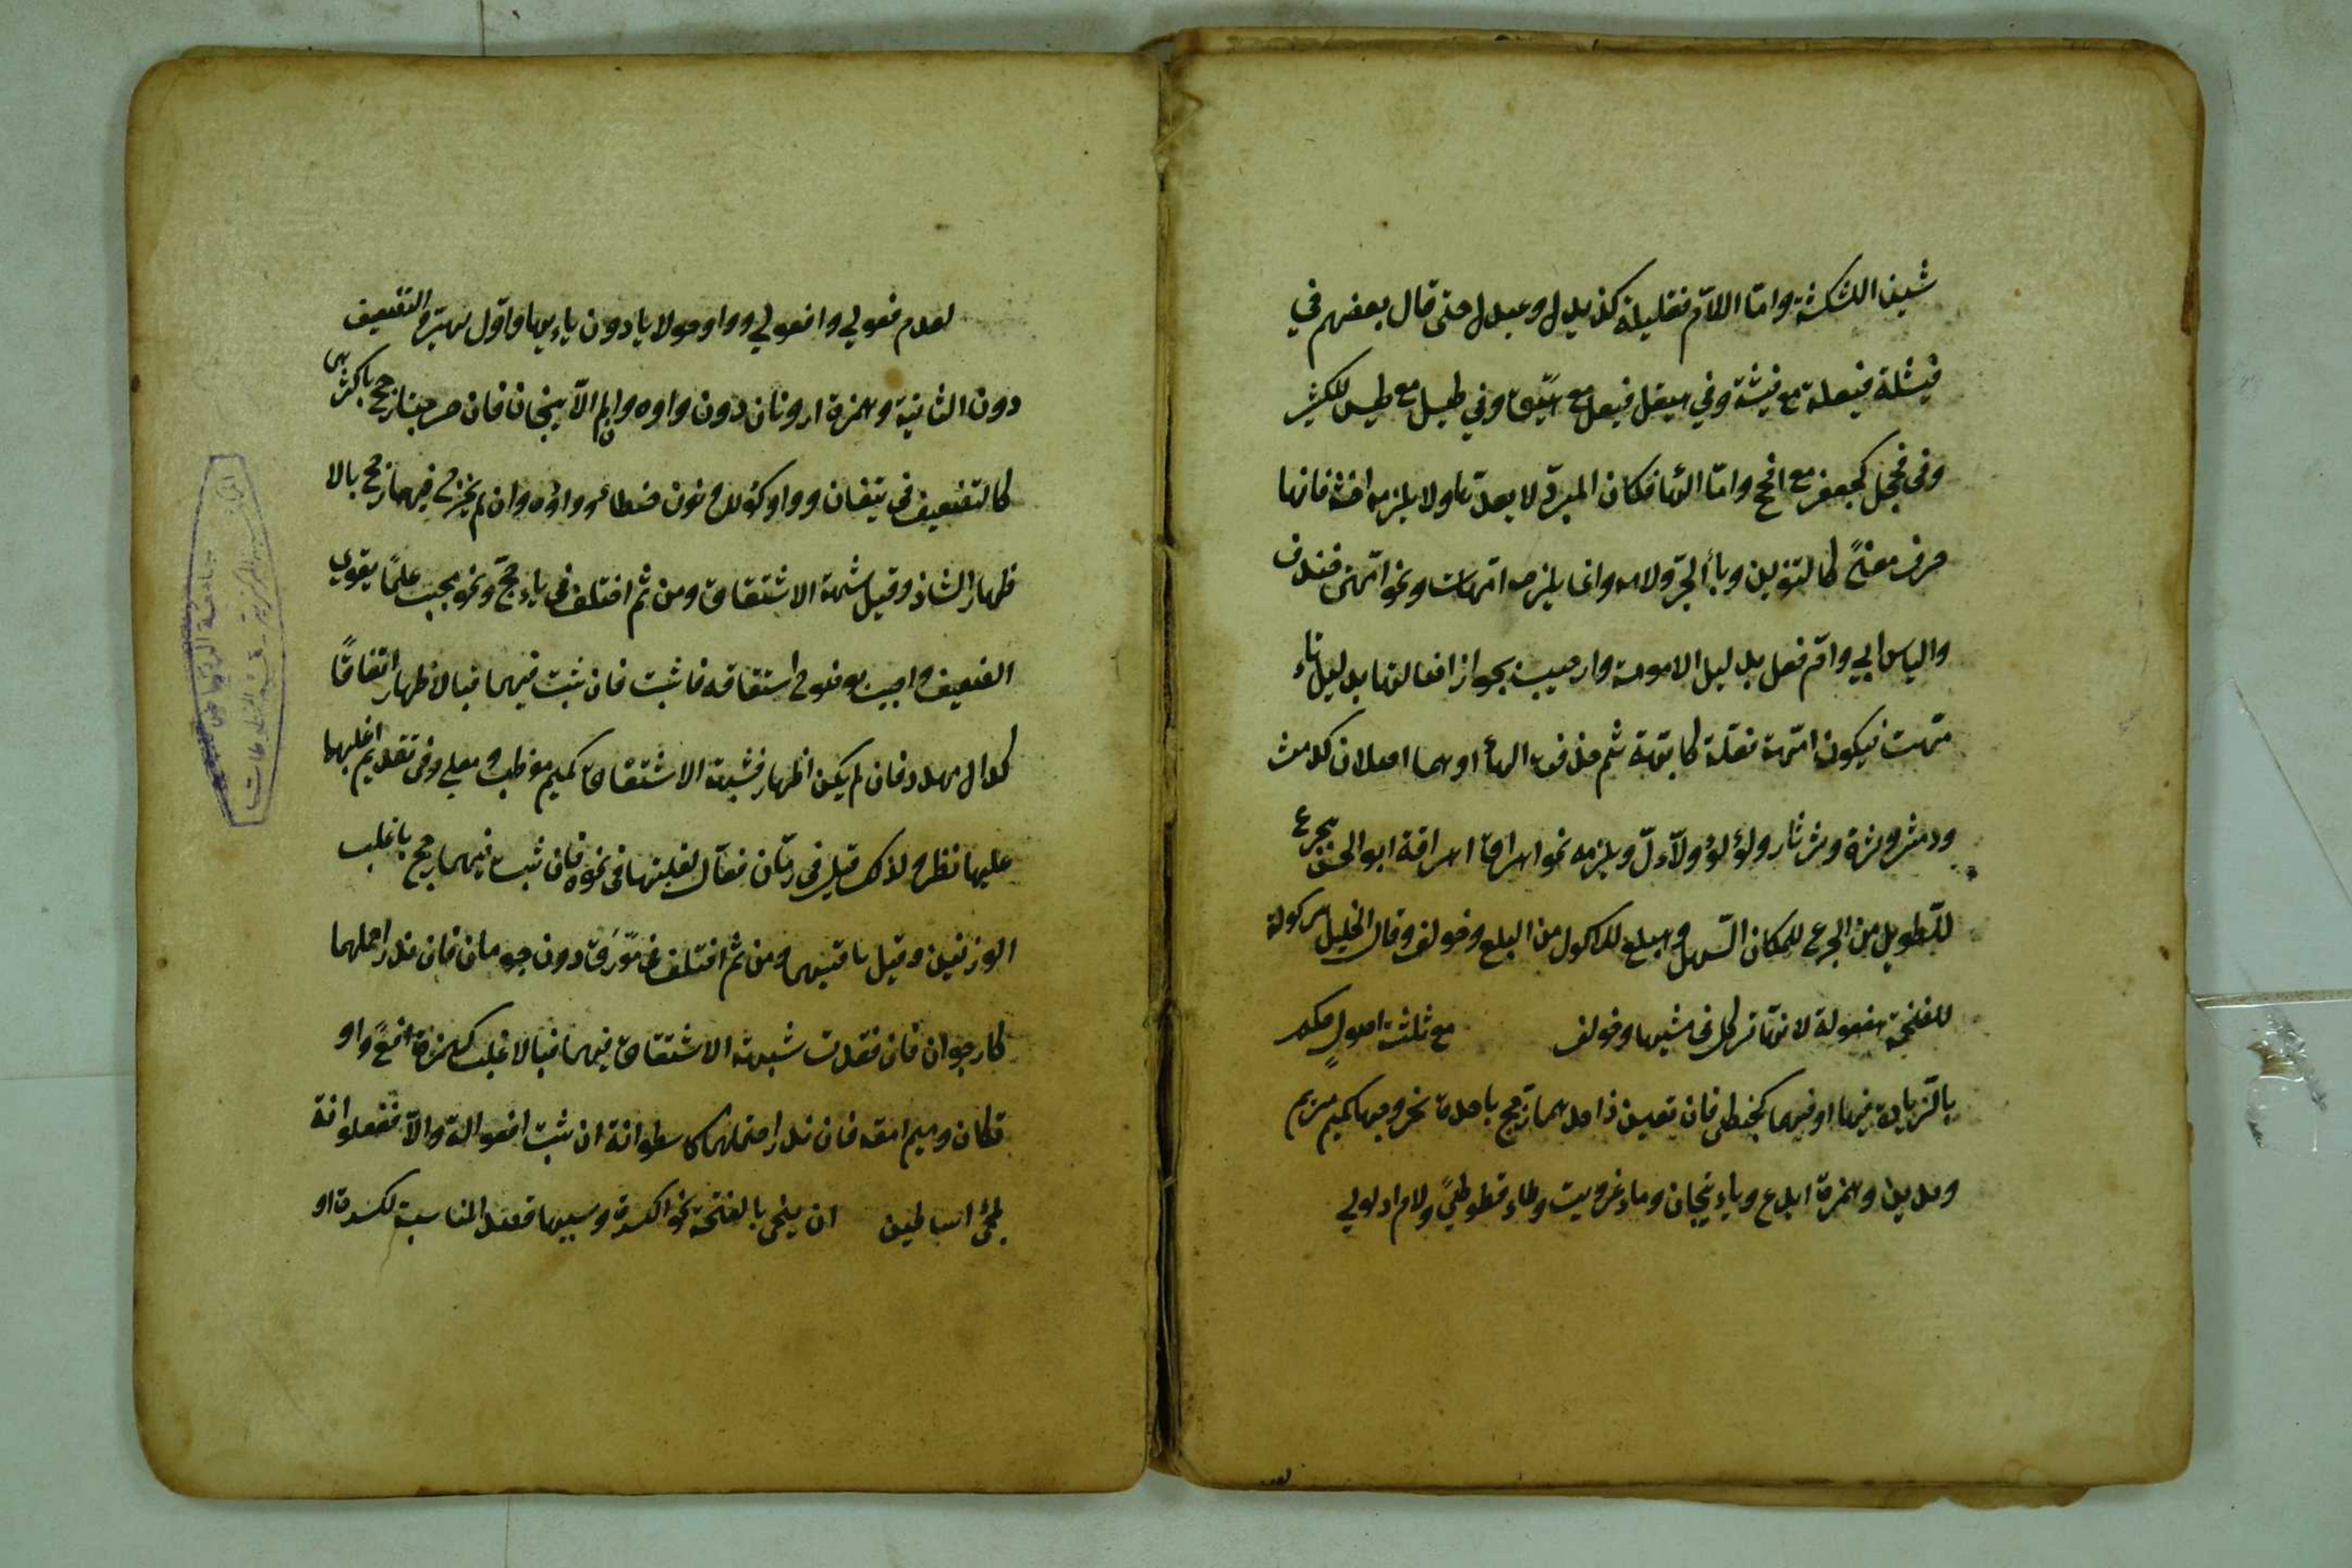 شين الكشكشة وامّا اللاّم فقليلة كزيدل وعبدل حتى قال بعضهم في
فيشلة فيعلة مع فيشة وفي هيقل فيعل مع هيّق وفي طيسل مع طيس للكثير
وفي فحجل كجعفر مع افحج وامّا الهاء فكان المبرّد لا يعدّها ولا يلزمه اخشه فانها
حرف معنًى كالتنوين وباء الجرّ ولامه وانما يلزمه امّهات ونحو امّهتى خندف
والياس ابي وامّ فعل بدليل الامومة واجيب بجواز اصالتها بدليل تاء
مّهت فيكون امّهة فعّلة كابّهة ثم حذف الهاء او هما اصلان كدمث
ودمثر وثرة وثرثار ولؤلؤ ولاّل ويلزمه نحو اهراق اهراقة ابو الحسن هجرع
للطّويل من الجرع للمكان السّهل وهبلع للاكول من البلع وخولف وقال الخليل هركولة
للضّخمة هفعولة لانّها تركل في مشيها وخولف مع ثلثة اصول حكم
بالزّيادة فيها او فيهما كحبنطى فان تعين احدهما رجح بخروجها كميم مريم
ومدين وهمزة ايدع وياء تيحان وتاء عزويت وطاء قطوطى ولام ادلولي
لعدم فعولى وافعولى وواو حولايا دون ياءيها واوّل يهيرّ والتضعيف
دون الثانية وهمزة ارونان دون واوه وان لم يات الا انبجان فان خرجتا رجح باكثرهما
كالتضعيف في تئفان وواو كوألل ونون حنطأو وواوه وان لم تخرج فيهما رجح بالا
ظهار الشاذ وقيل بشبهة الاشتقاق ومن ثم اختلف في ياجج ومأجج ونحو محبب علمًا يقوى
الضعيف واجيب بوضوح اشتقاقه فان ثبت فيهما فبالاظهار اتفاقًا
كدال مهدد فان لم يكن اظهار فشبهة الاشتقاق كميم موظب ومعلى وفي تقديم اغلبهما
عليها نظر ولذلك قيل في رمّان فعّال لغلبتها في نحوه فان ثبت فيهما رجح باغلب
الوزنين وقيل باقيسهما ومن ثم اختلف في مورق دون حومان فان ندر احتملهما
كارجوان فان فقدت شبهة الاشتقاق فيهما فبالاغلب كهمزة افعًى واو
تكان وميم امّعة فان ندر احتملهما كاسطوانة ان ثبت افعوالة والاّ ففعلوانة
لمجئ اساطين ان ينحى بالفتحة نحو الكسرة وسببها قصد المناسبة لكسرة او